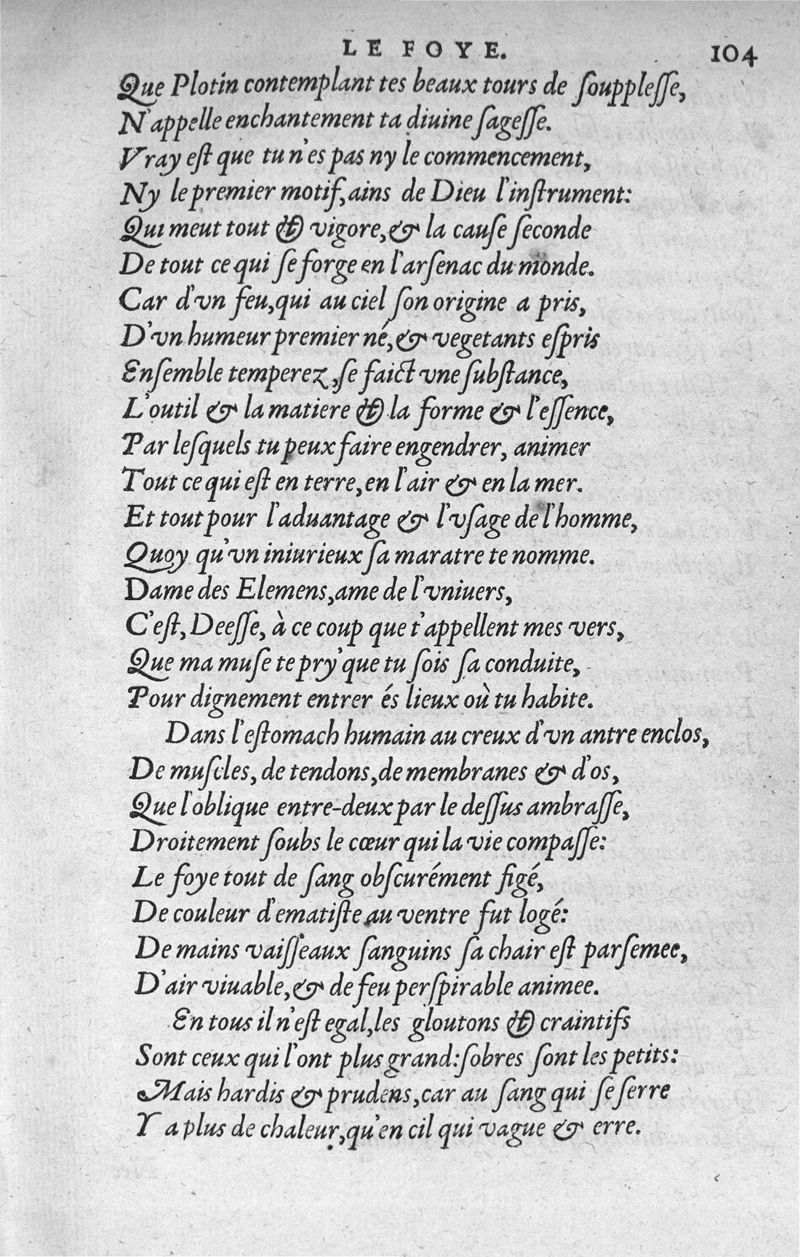 LE FOYE. 104
Que Plotin contemplant tes beaux tours de ſouppleſſe,
N'appelle enchantement ta diuine ſageſſe.
Vray eſt que tu n'es pas ny le commencement,
Ny le premier motif, ains de Dieu l'inſtrument:
Qui meut tout & vigore, & la cauſe ſeconde
De tout ce qui ſe forge en l'arſenac du monde.
Car d'vn feu, qui au ciel ſon origine a pris,
D'vn humeur premier né, & vegetants eſpris
Enſemble temperez, ſe faict vne ſubſtance,
L'outil & la matiere & la forme & l'eſſence,
Par leſquels tu peux faire engendrer, animer
Tout ce qui eſt en terre, en l'air & en la mer.
Et tout pour l'aduantage & l'vſage de l'homme,
Quoy qu'vn iniurieux ſa maratre te nomme.
Dame des Elemens, ame de l'vniuers,
C'eſt, Deeſſe, à ce coup que t'appellent mes vers,
Que ma muſe te pry' que tu ſois ſa conduite,
Pour dignement entrer és lieux où tu habite.
Dans l'eſtomach humain au creux d'vn antre enclos,
De muſcles, de tendons, de membranes & d'os,
Que l'oblique entre-deux par le deſſus ambraſſe,
Droitement ſoubs le cœur qui la vie compaſſe:
Le foye tout de ſang obſcurément figé,
De couleur d'ematiſte au ventre fut logé:
De mains vaiſſeaux ſanguins ſa chair eſt parſemee,
D'air viuable, & de feu perſpirable animee.
En tous il n'eſt egal, les gloutons & craintifs
Sont ceux qui l'ont plus grand: ſobres ſont les petits:
Mais hardis & prudens, car au ſang qui ſe ſerre
Y a plus de chaleur, qu'en cil qui vague & erre.